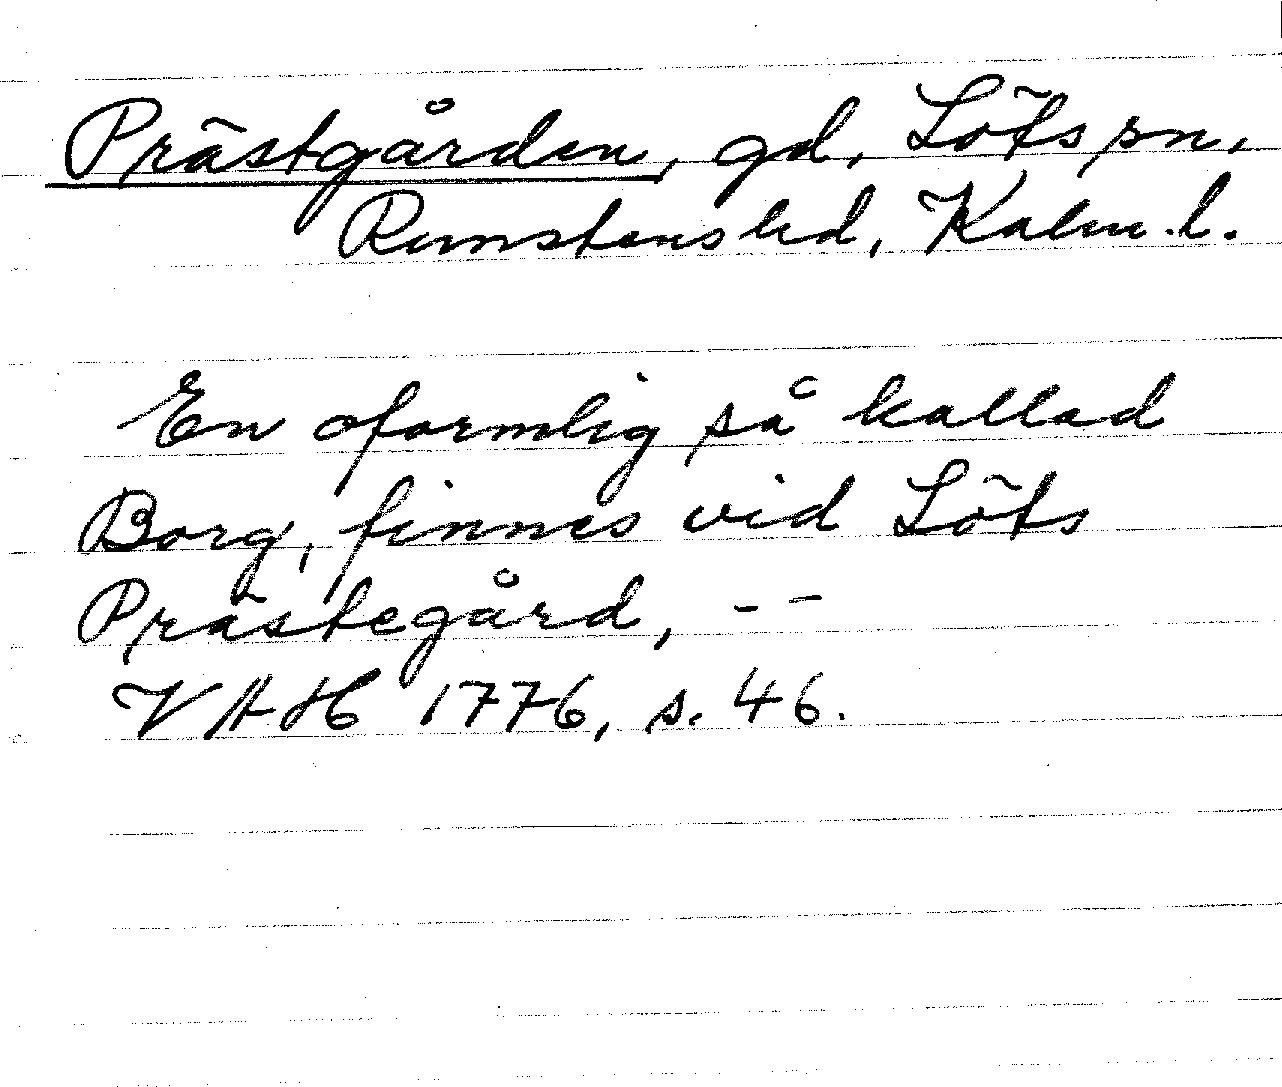 Prästgården, gd, Löts sn,
Runstens hd, Kalm. l.
En oformlig så kallad
Borg, finnes vid Löts
Prästegård, --
VAH 1776, s. 46.